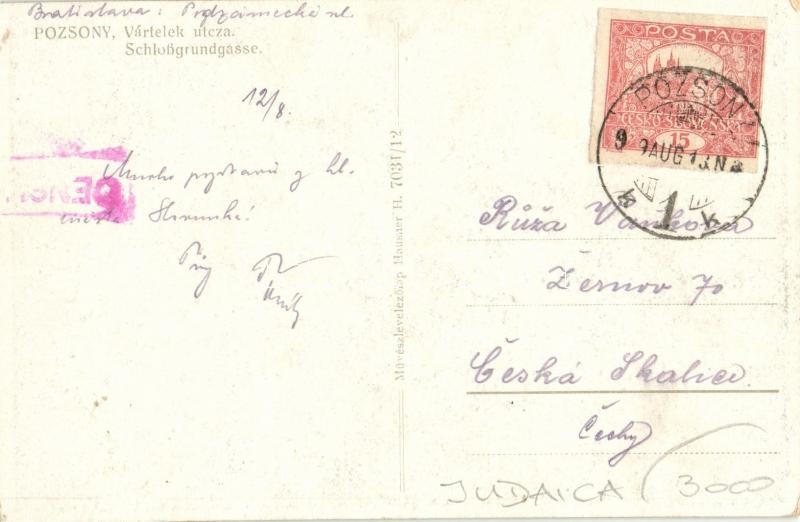 Bratislava: Podzámecká ul.
POZSONY, Vártelek utcza.
Schloßgrundgasse.
12/8.
Mnoho pozdravů z hl.
města Slovenska!
Művészlevelezőlap Hausner H. 7031/12
POSTA
ČESKO-SLOVENSKÁ
15
POZSONY
9 9AUG 13.N
1
Růža Vaňková
Žernov 70
Česká Skalice
Čechy
JUDAICA / 3000